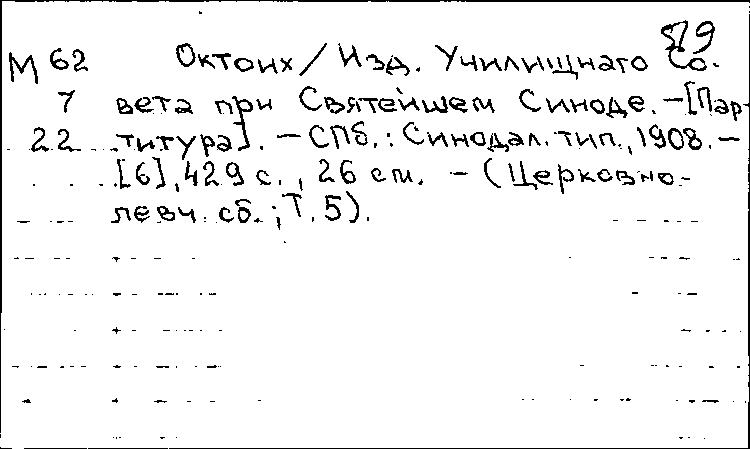 579
М 62 Октоих / Изд. Училищнаго Со-
7 вета при Святейшем Синоде. – [Пар-
22 титура]. – СПб.: Синодал. тип., 1908. –
[6], 429 с., 26 см. – (Церковно-
певч. сб.; Т. 5).